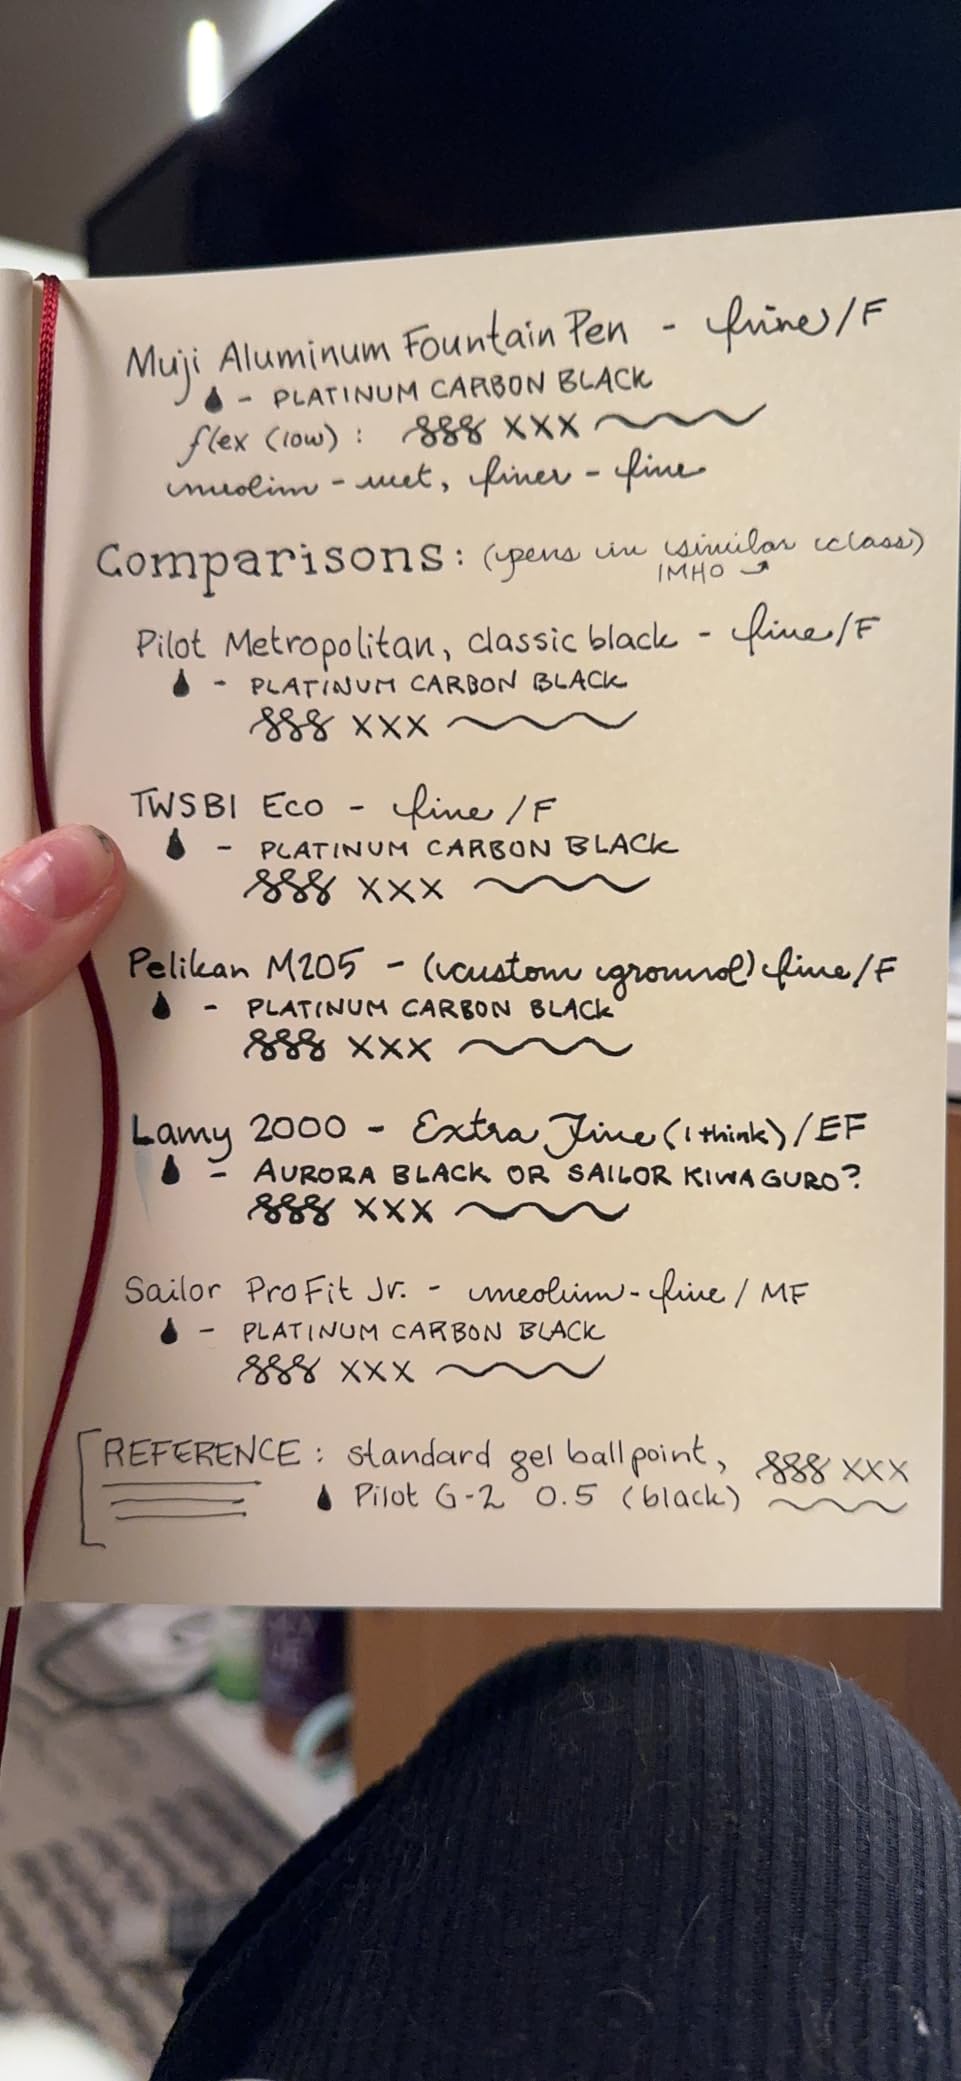 Muji Aluminum Fountain Pen - fine/F
- PLATINUM CARBON BLACK
flex (low) : 888 XXX
medium - wet, finer - fine
Comparisons: (pens in similar class)
IMHO
Pilot Metropolitan, classic black - fine/F
- PLATINUM CARBON BLACK
888 XXX
TWSBI Eco - fine/F
- PLATINUM CARBON BLACK
888 XXX
Pelikan M205 - (custom ground) fine/F
- PLATINUM CARBON BLACK
888 XXX
Lamy 2000 - Extra Fine (I think)/EF
- AURORA BLACK OR SAILOR KIWAGURO?
888 XXX
Sailor ProFit Jr. - medium-fine / MF
- PLATINUM CARBON BLACK
888 XXX
REFERENCE: standard gel ballpoint, 888 XXX
Pilot G-2 0.5 (black)